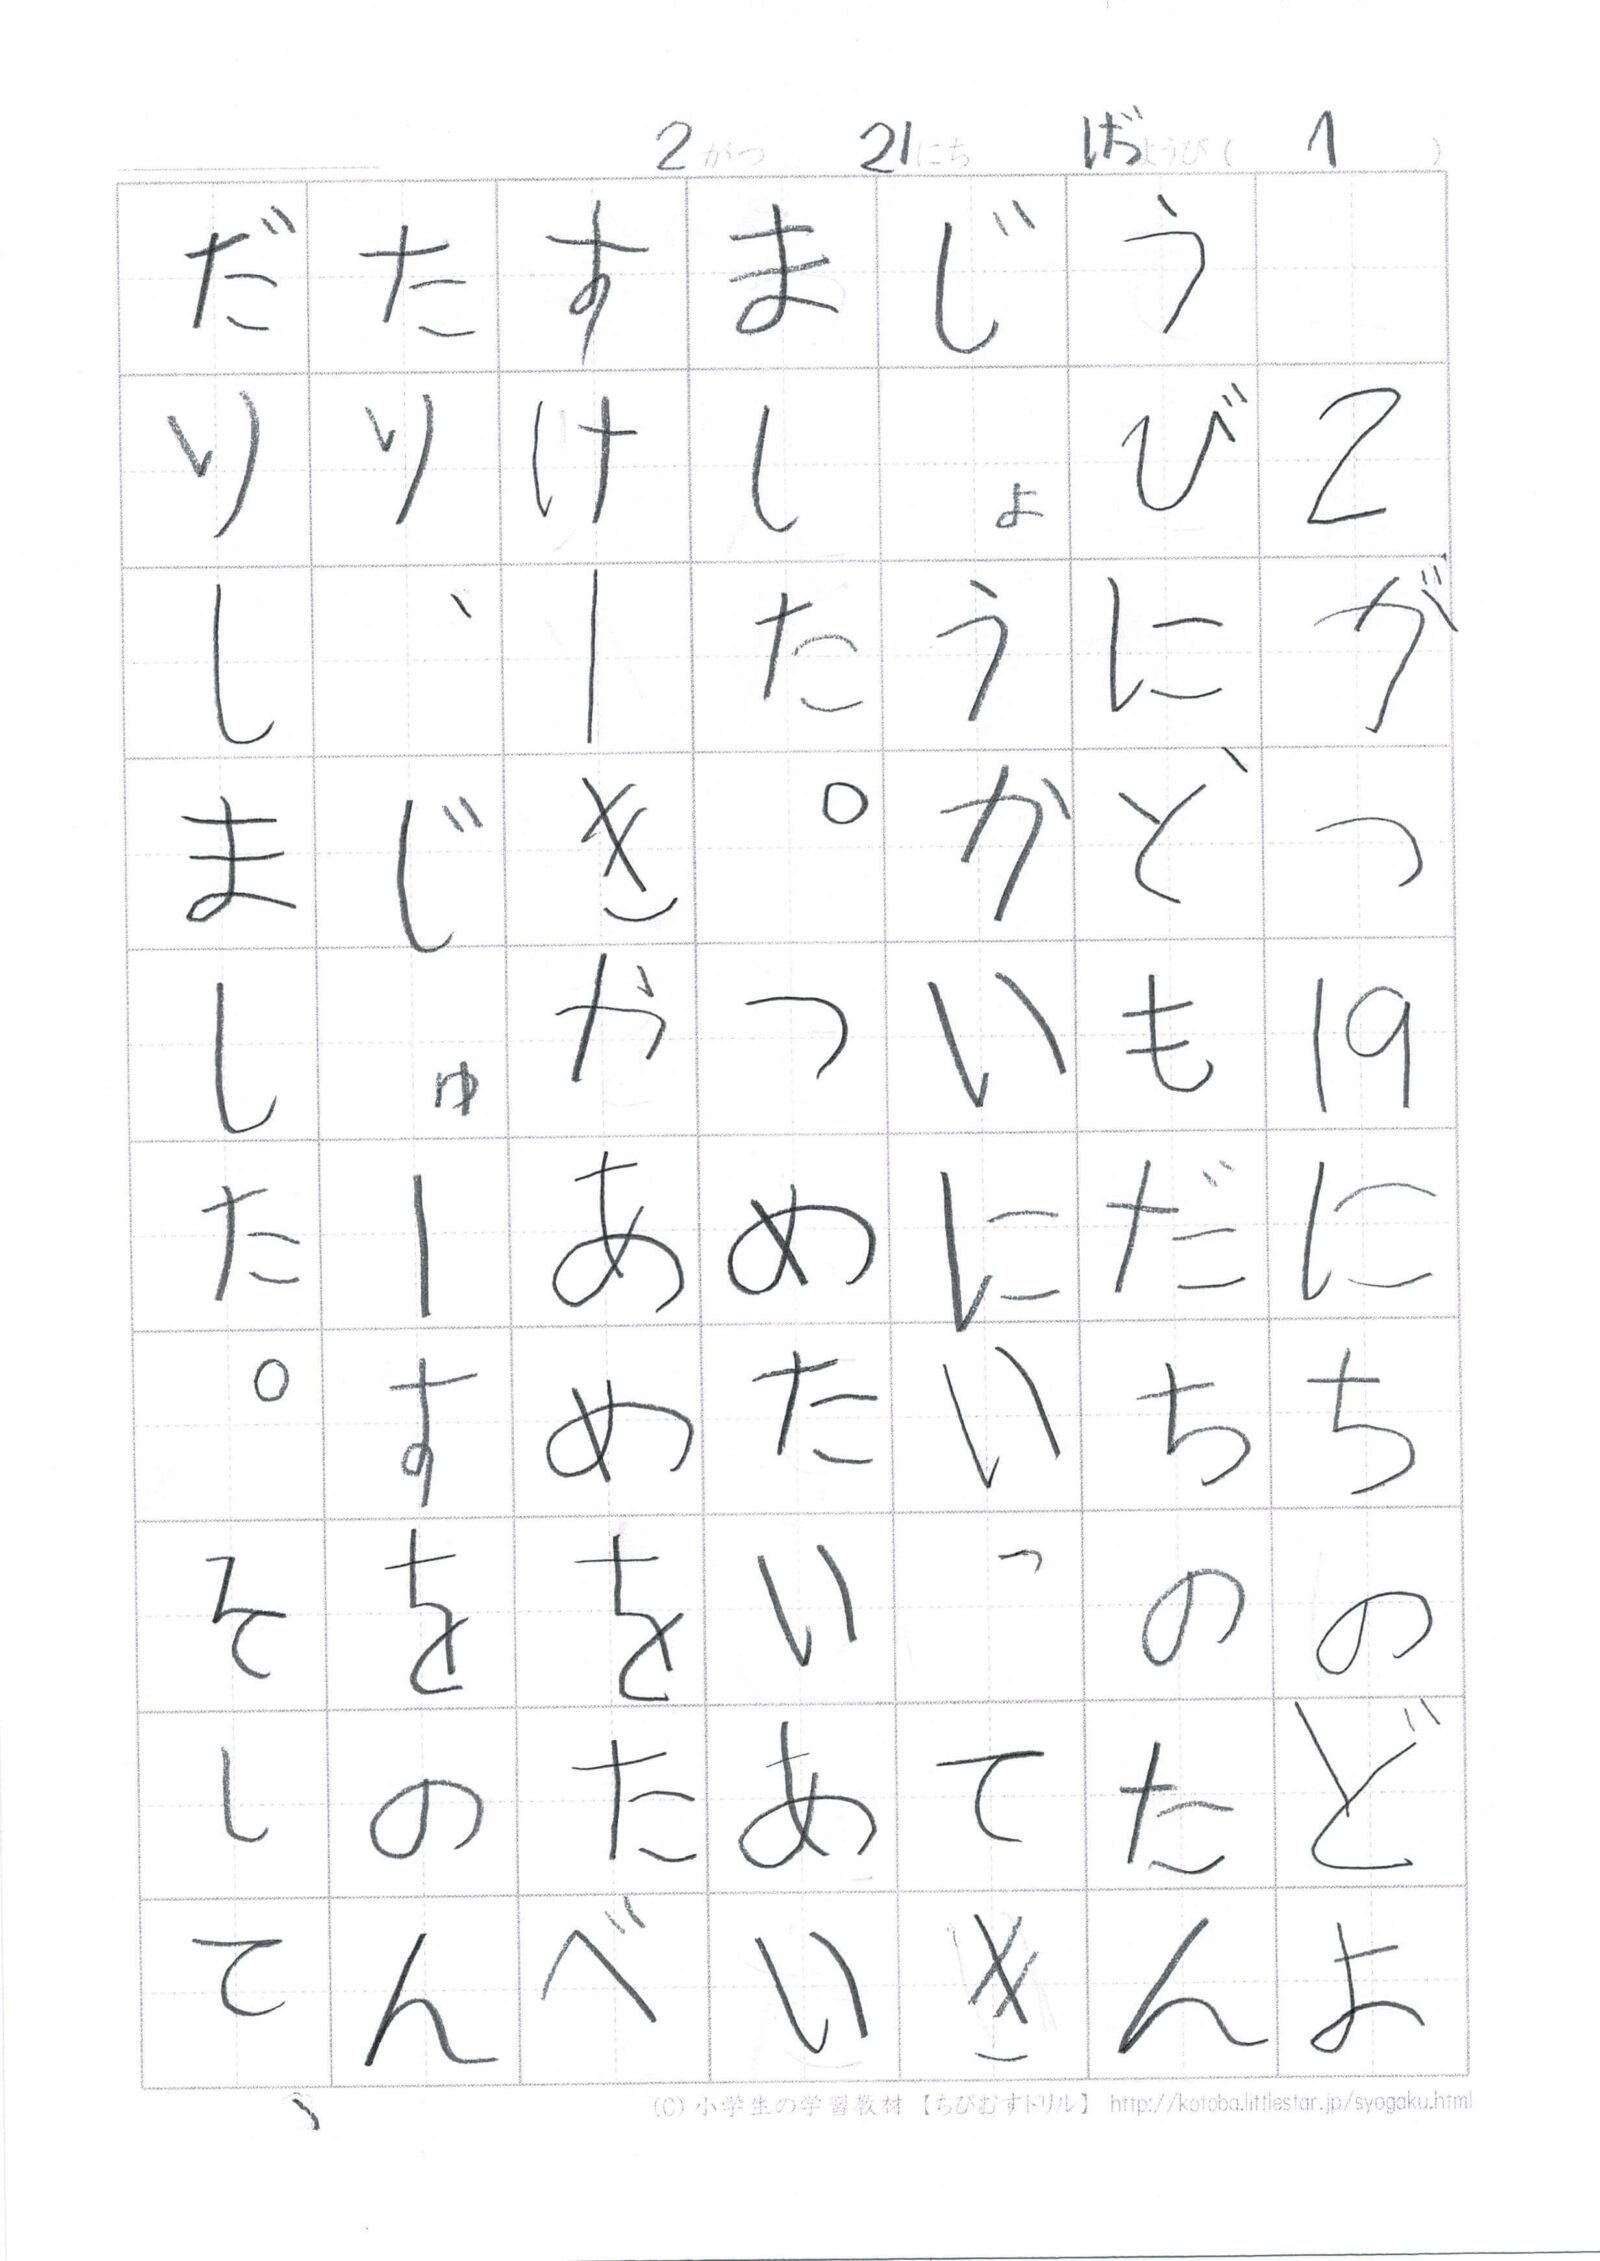 2がつ 21にち げつようび( 1 )
2がつ19にちのどよ
うびに、ともだちのたん
じょうかいにいってき
ました。つめたいあい
すけーきかあめをたべ
たり、じゅーすをのん
だりしました。そして、
(C) 小学生の学習教材【ちびむすドリル】 http://kotoba.littlestar.jp/syogaku.html